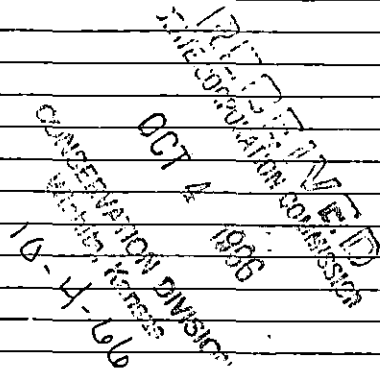 RECEIVED
STATE CORPORATION COMMISSION
OCT 4 1966
CONSERVATION DIVISION
Wichita, Kansas
10-4-66